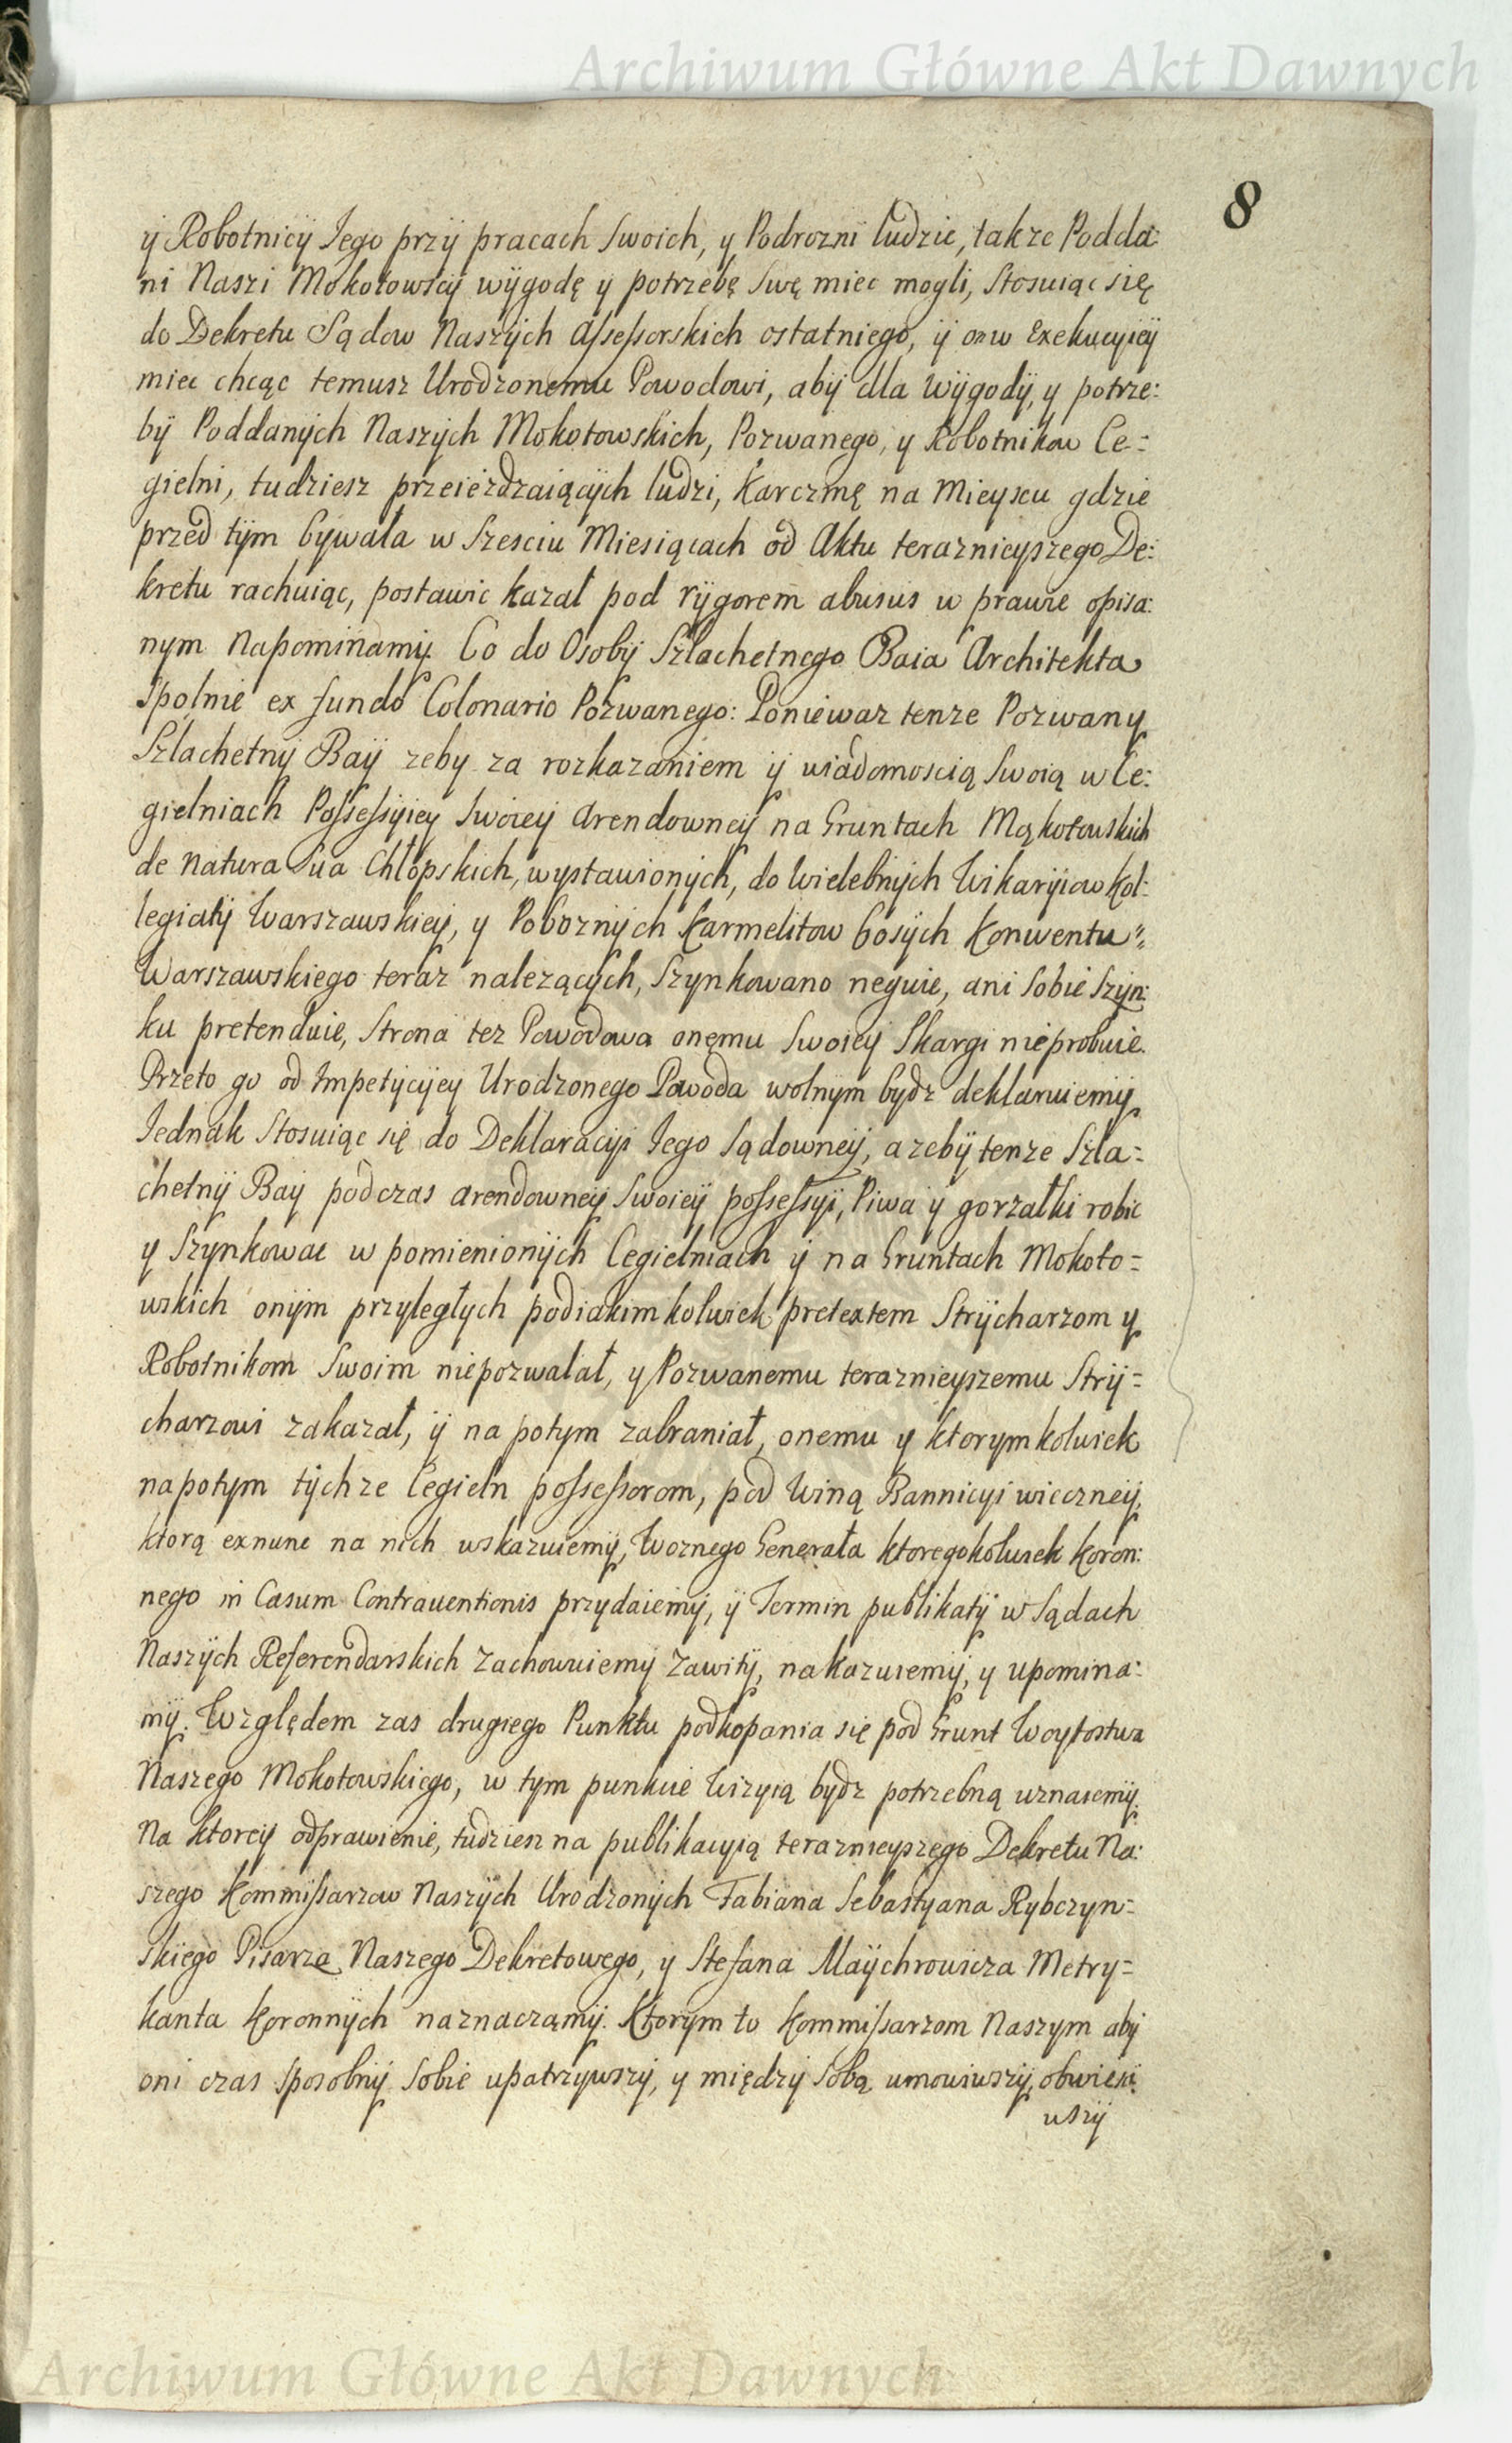 Archiwum Główne Akt Dawnych
8
ÿ Robotnicÿ Jego przÿ pracach swoich, y Podrozni ludzie, takze Podda:
ni Naszi Mokotowscÿ wÿgodę y potrzebę swę miec mogli, stosuiąc się
do Dekretu Sądow Naszÿch Assessorskich ostatniego, ÿ onw Exekucyieÿ
miec chcąc temusz Urodzonemu Powodowi, abÿ dla wÿgodÿ, y potrze:
bÿ Poddanÿch Naszÿch Mokotowskich, Pozwanego, y Robotnikow Ce=
gielni, tudziesz przeieżdzaiącÿch ludzi, Karczmę na Mieyscu gdzie
przed tÿm bÿwała w Szesciu Miesiącach od Aktu teraznieyszego De:
kretu rachuiąc, postawic kazał pod rÿgorem abusus w prawie opisa:
nym Napominamÿ. Co do Osobÿ Szlachetnego Baia Architekta
spolnie ex fundo Colonario Pozwanego: Poniewaz tenze Pozwany
Szlachetnÿ Baÿ zeby za rozkazaniem ÿ wiadomoscią swoią w Ce:
gielniach Possessÿiey swoieÿ Arendowneÿ na Gruntach Mąkotowskich
de natura sua Chłopskich, wystawionÿch, do Wielebnÿch Wikarÿiow Kol:
legiatÿ Warszawskieÿ, y Poboznÿch Karmelitow bosÿch Konwentu
Warszawskiego teraz nalezącÿch, Szynkowano neguie, ani sobie Szÿn:
ku pretenduie, Strona tez Powodowa onemu swoieÿ Skargi nieprobuie.
Przeto go od Impetÿcÿey Urodzonego Powoda wolnym bydz deklaruiemÿ,
Jednak stosuiąc się do Deklaracyi Jego Sądowneÿ, azebÿ tenze Szla=
chetnÿ Bay podczas Arendowneÿ swoieÿ possessyi, Piwa y gorzałki robic
y Szynkowac w pomienionÿch Cegielniach ÿ na Gruntach Mokoto=
wskich onÿm przyległych podiakimkolwiek pretextem Strÿcharzom y
Robotnikom swoim niepozwalał, y Pozwanemu teraznieyszemu Strÿ=
charzowi zakazał, ÿ na potym zabraniał, onemu y ktorymkolwiek
napotym tÿchze Cegieln possessorom, pod Winą Bannicyi wieczneÿ,
ktorą exnunc na nich wskazuiemÿ, Woznego Generała ktoregokolwiek Koron:
nego in Casum Contrauentionis przydaiemÿ, ÿ Termin publikatÿ w Sądach
Naszÿch Referendarskich zachowuiemy zawitÿ, nakazuiemÿ, y upomina:
mÿ. Względem zas drugiego Punktu podkopania się pod Grunt Woytostwa
Naszego Mokotowskiego, w tym punkcie Wizyią bydz potrzebną uznaiemÿ.
Na ktoreÿ odprawienie, tudziesz na publikacyią teraznieyszego Dekretu Na:
szego Kommissarzow Naszÿch Urodzonÿch Fabiana Sebastyana Rybczyn=
skiego Pisarza Naszego Dekretowego, y Stefana Maÿchrowicza Metry=
kanta Koronnÿch naznaczamÿ. Ktorym to Kommissarzom Naszym abÿ
oni czas sposobnÿ sobie upatrzywszÿ, y międzÿ sobą umowiwszÿ, obwiesci
wszÿ
Archiwum Główne Akt Dawnych